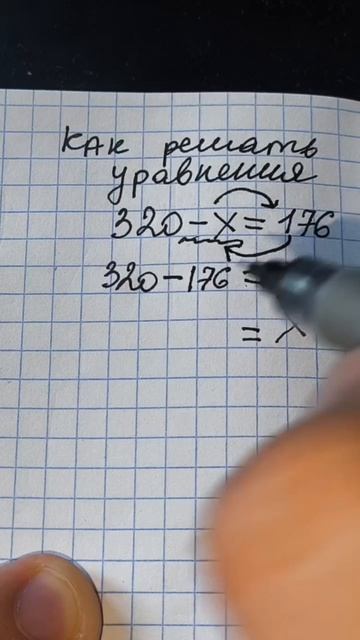 как решать
уравнения
320 - x = 176
320 - 176 =
=